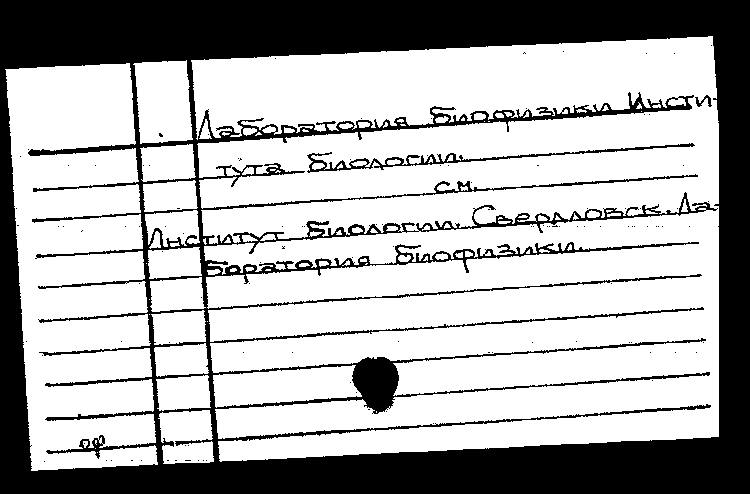 Лаборатория биофизики Инсти-
тута биологии.
см.
Институт биологии. Свердловск. Ла-
боратория биофизики.
оф